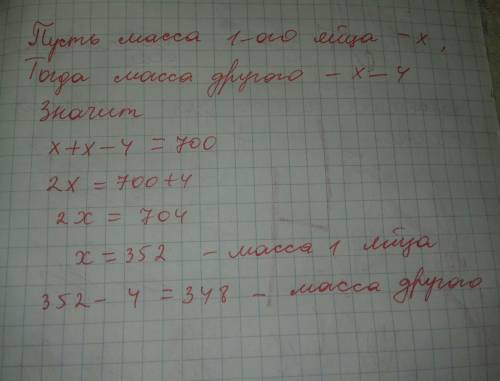 Пусть масса 1-ого яйца - x,
Тогда масса другого - x-4
Значит
x+x-4=700
2x=700+4
2x=704
x=352 - масса 1 яйца
352-4=348- масса другого